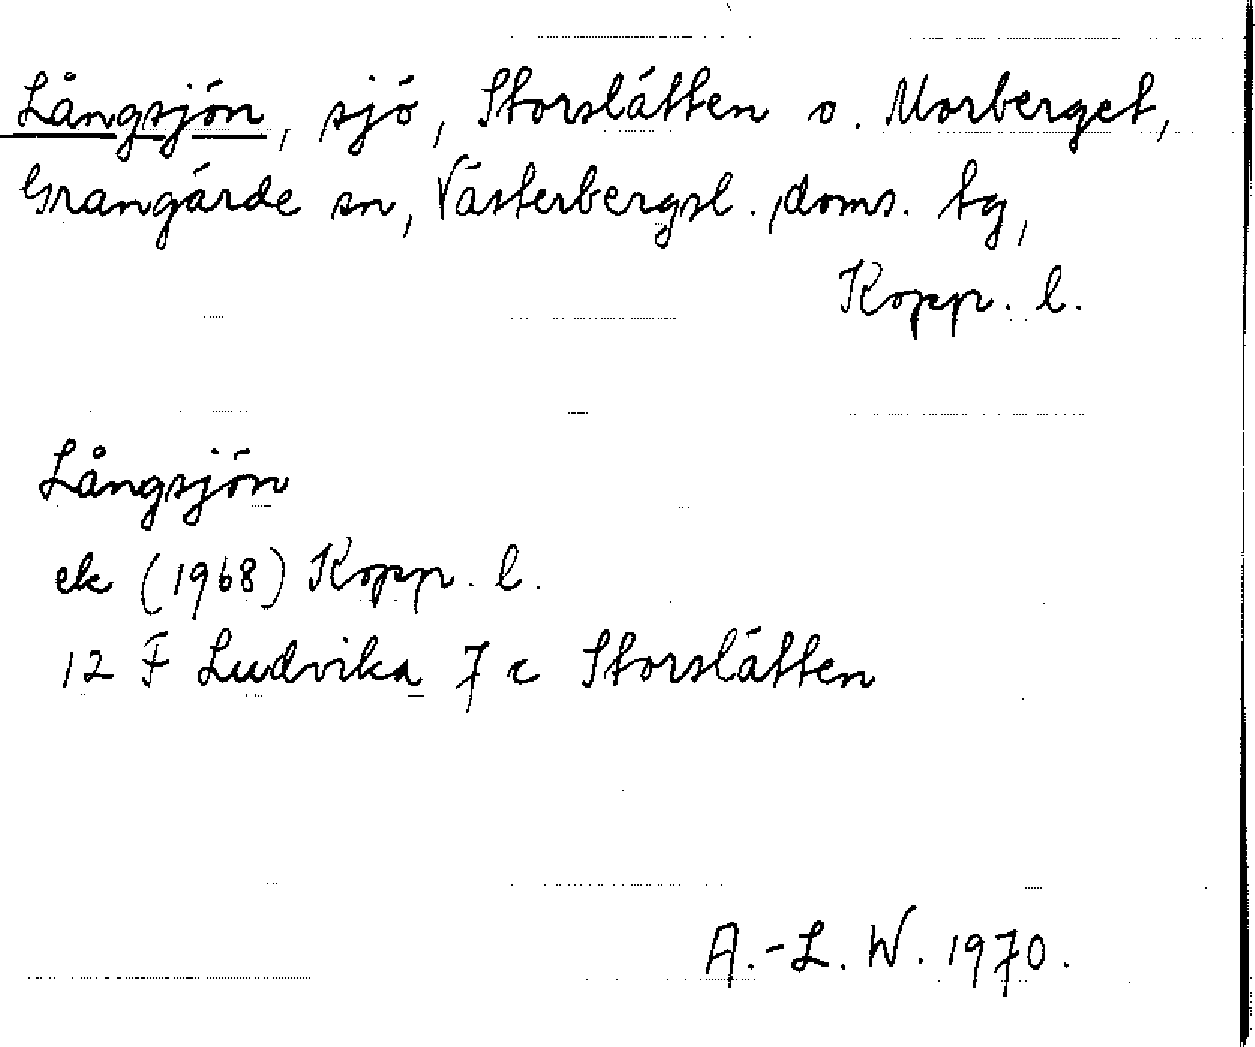 Långsjön, sjö, Storslätten o. Morberget,
Grangärde sn, Västerbergsl. doms. tg,
Kopp. l.
Långsjön
ek (1968) Kopp. l.
12 F Ludvika 7 c Storslätten
A.-L. W. 1970.